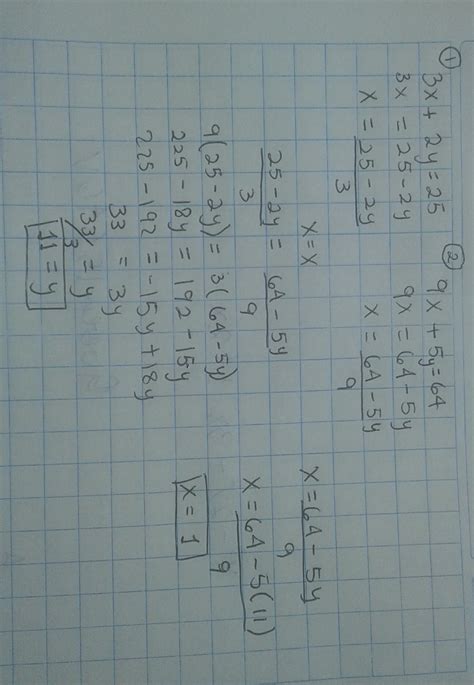 ① 3x + 2y = 25
3x = 25 - 2y
x = 25 - 2y
3
② 9x + 5y = 64
9x = 64 - 5y
x = 64 - 5y
9
x = x
25 - 2y = 64 - 5y
3 9
9(25 - 2y) = 3(64 - 5y)
225 - 18y = 192 - 15y
225 - 192 = -15y + 18y
33 = 3y
33/3 = y
11 = y
x = 64 - 5y
9
x = 64 - 5(11)
9
x = 1